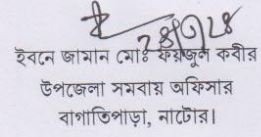 ইবনে জামান মোঃ ফয়জুল কবীর
উপজেলা সমবায় অফিসার
বাগাতিপাড়া, নাটোর।